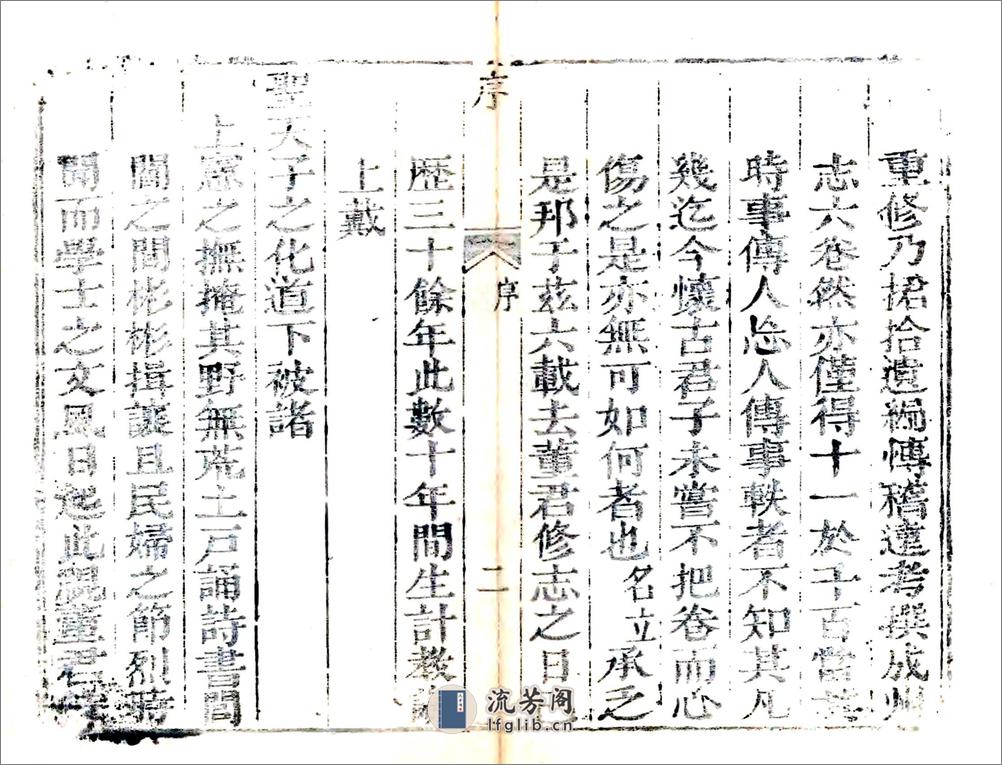 重修乃捃拾遺編博稽遠考撰成州
志六卷然亦僅得十一於千百當其
時事傳人忘人傳事軼者不知其凡
幾迄今懷古君子未嘗不把卷而心
傷之是亦無可如何者也名立承乏
是邦于茲六載去董君修志之日
序
序
二
歷三十餘年此數十年間生計教
上戴
聖天子之化道下被諸
上憲之撫掩其野無荒土戶誦詩書閭
閻之間彬彬揖讓且民婦之節烈時
聞而學士之文風日起此視董君
流芳阁
lfglib.cn